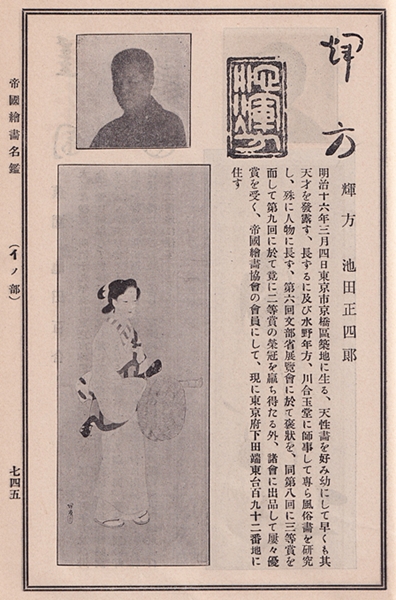 輝方
輝方 池田正四郎
明治十六年三月四日東京市京橋區築地に生る、天性畫を好み幼にして早くも其
天才を發露す、長ずるに及び水野年方、川合玉堂に師事して專ら風俗畫を研究
し、殊に人物に長ず、第六回文部省展覽會に於て褒狀を、同第八回に三等賞を
而して第九回に於て竟に二等賞の榮冠を贏ち得たる外、諸會に出品して屢々優
賞を受く、帝國繪畫協會の會員にして、現に東京府下田端東台百九十二番地に
住す
帝國繪畫名鑑
(イノ部)
七四五